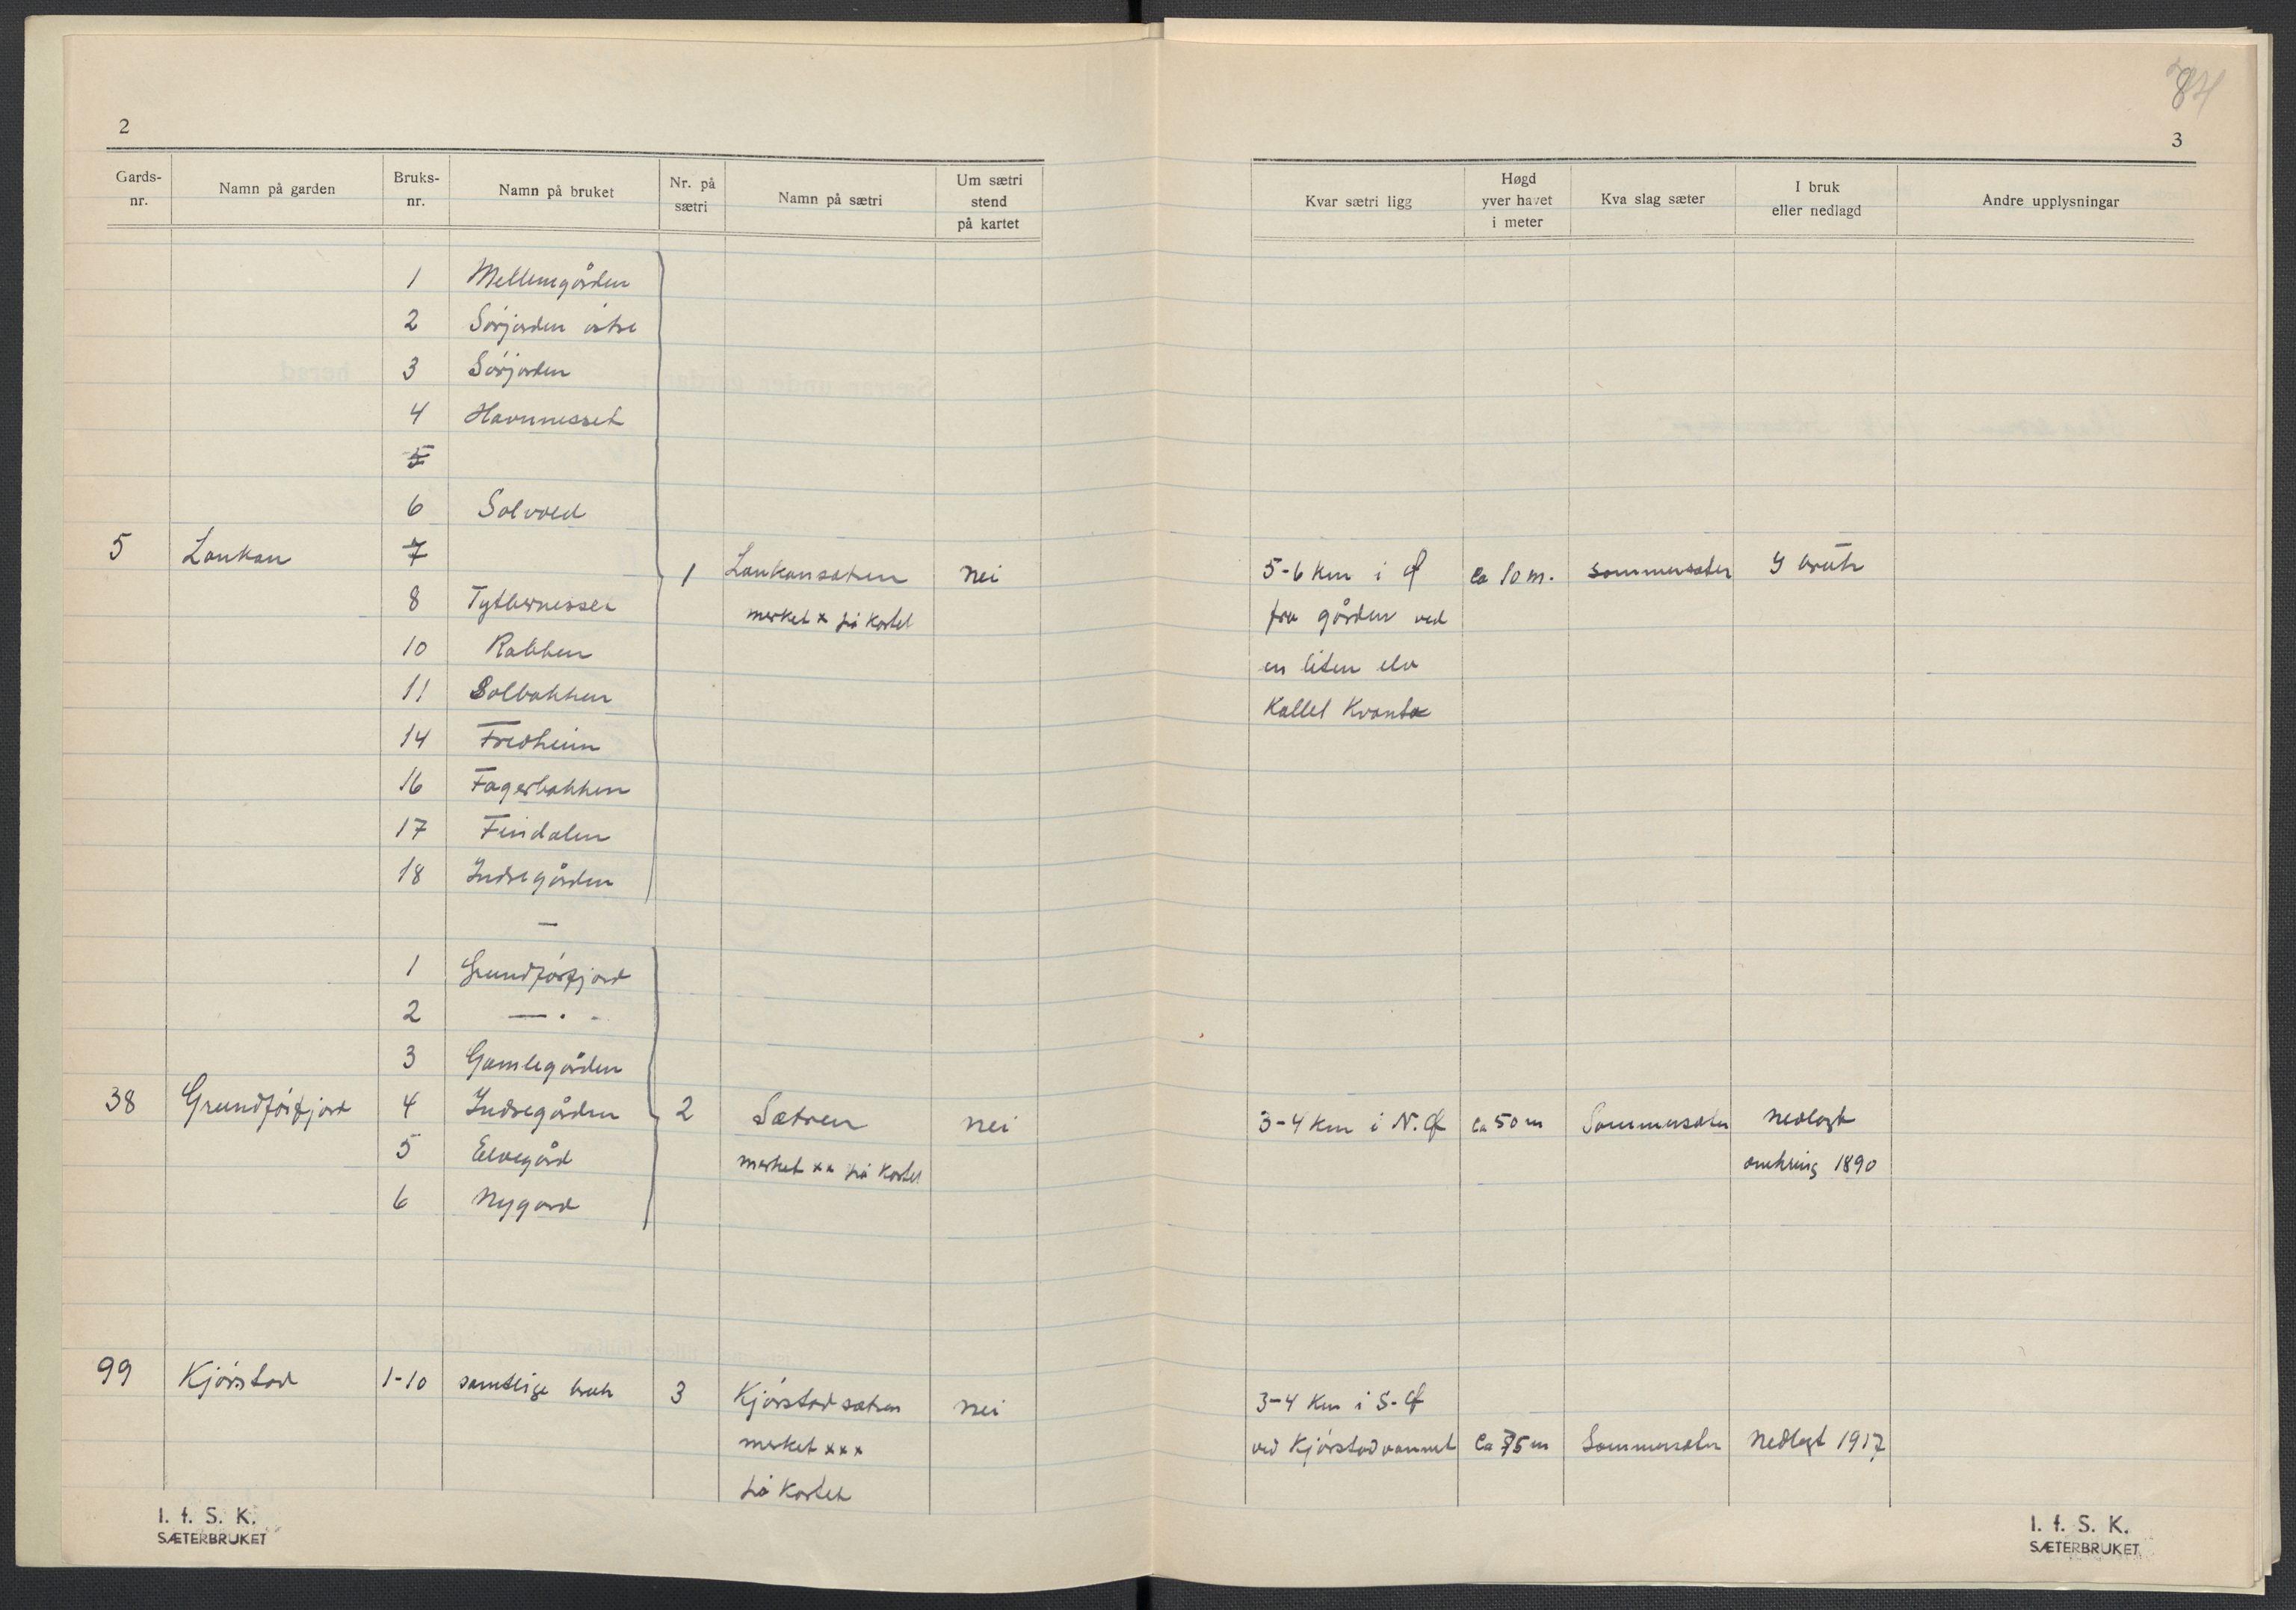 2
Gards-nr. Namn på garden Bruks-nr. Namn på bruket Nr. på sætri Namn på sætri Um sætri stend på kartet
1 Mellemgården
2 Sörjorden östre
3 Sörjorden
4 Havnnesset
5
6 Solvold
5 Laukan 7
1 Laukansætren nei
8 Tytbernesset
merket x på kartet
10 Rabben
11 Solbakken
14 Fredheim
16 Fagerbakken
17 Findalen
18 Indregården
—
1 Grundförfjord
2 — . -
3 Gamlegården
38 Grundförfjord 4 Indregården 2 Sætren nei
5 Elvegård
merket xx på kartet
6 Nygård
99 Kjörstad 1-10 samtlige bruk 3 Kjörstadsætren nei
merket xxx
på kartet
I. f. S. K.
SÆTERBRUKET
84
3
Kvar sætri ligg Høgd yver havet i meter Kva slag sæter I bruk eller nedlagd Andre upplysningar
5-6 km i Ø ca 10 m. sommersæter I bruk
fra gården ved
en liten elv
kallet Kvanto
3-4 km i N.Ø ca 50 m Sommersæter nedlagt
omkring 1890
3-4 km i S-Ø
ved Kjörstadvannet ca 75 m Sommersæter Nedlagt 1917
I. f. S. K.
SÆTERBRUKET